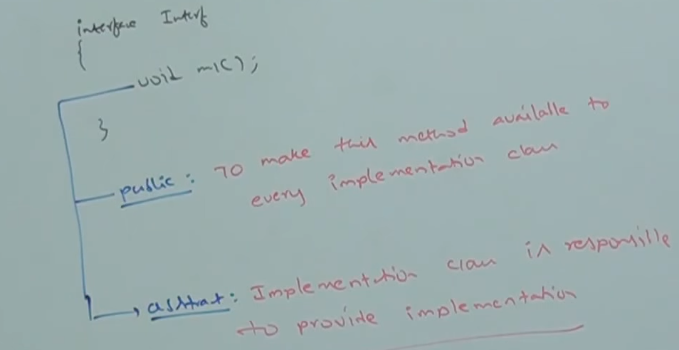 interface Interf
{
void m1();
}
public: To make this method available to
every implementation class
abstract: Implementation class is responsible
to provide implementation